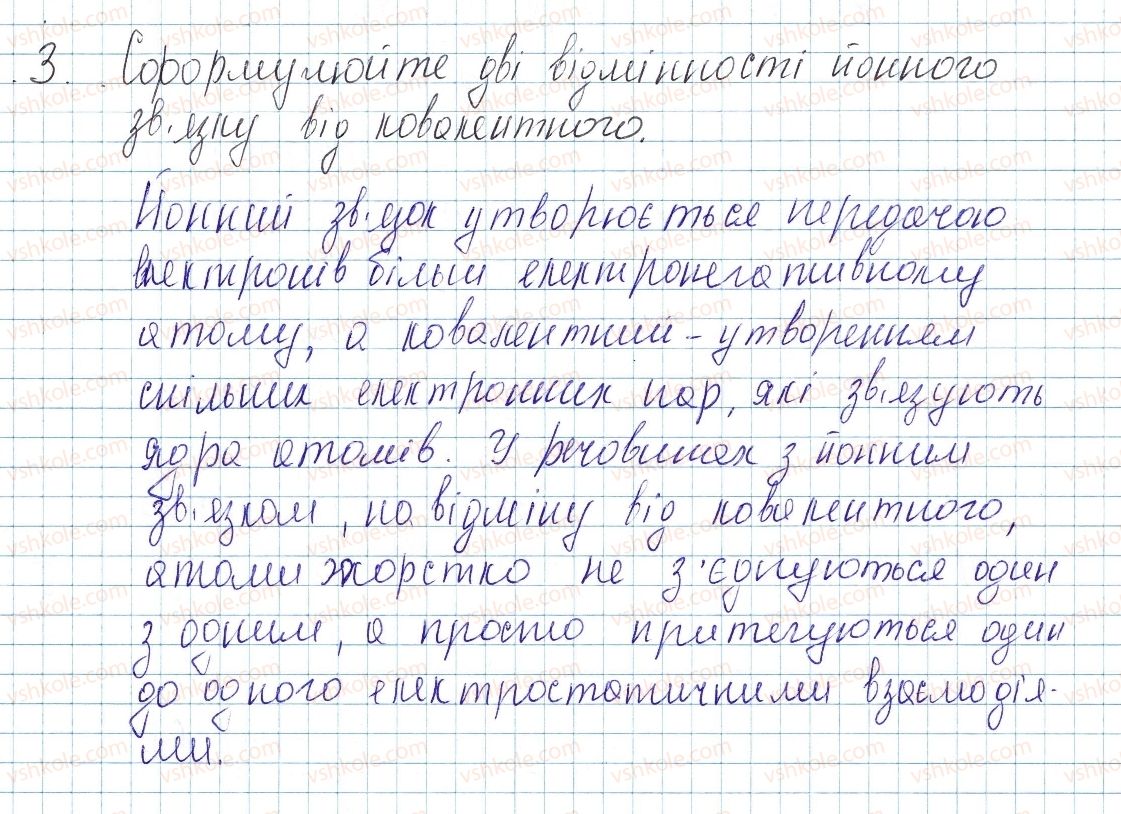 3. Сформулюйте дві відмінності йонного
зв'язку від ковалентного.
Йонний зв'язок утворюється передачою
електронів більш електронегативному
атому, а ковалентний - утворенням
спільних електронних пар, які зв'язують
ядра атомів. У речовинах з йонним
зв'язком, на відміну від ковалентного,
атоми жорстко не з'єднуються один
з одним, а просто притягуються один
до одного електростатичними взаємодія-
ми.